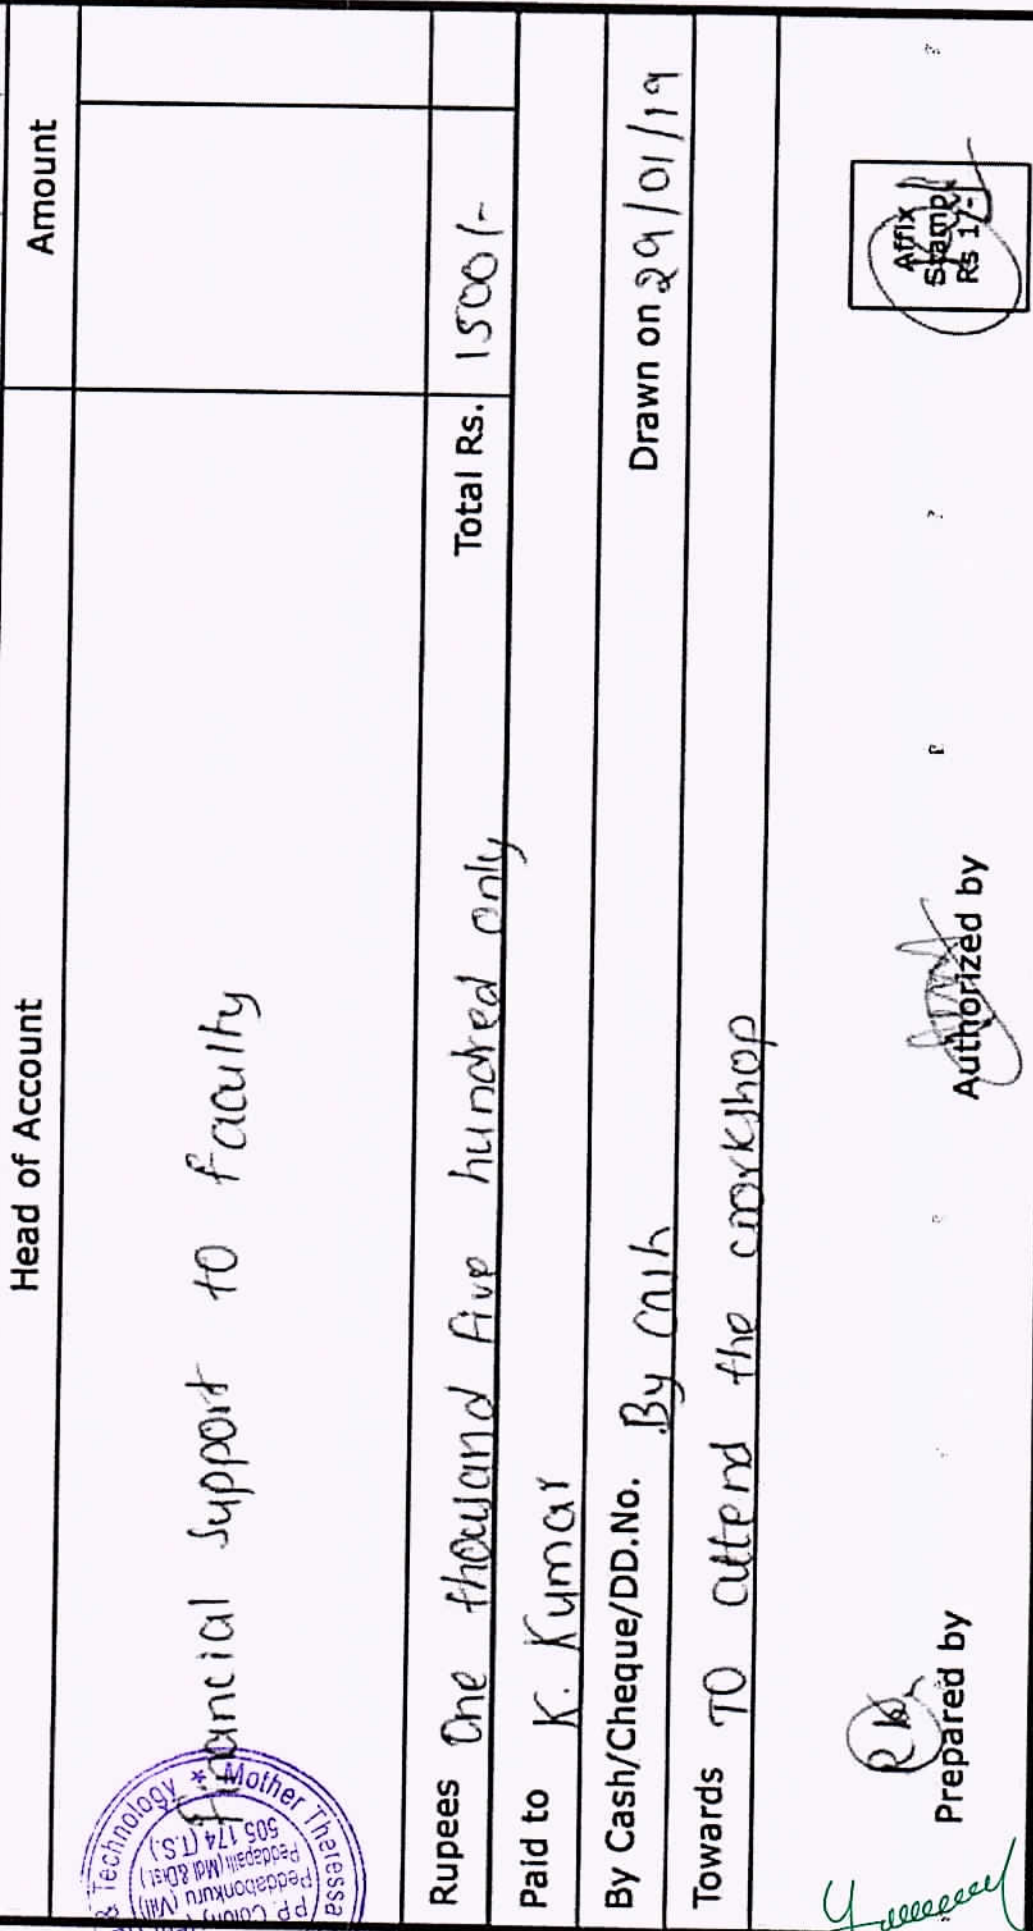 Head of Account Amount
Financial Support to faculty
Rupees One thousand five hundred only Total Rs. 1500/-
Paid to K. Kumar
By Cash/Cheque/DD.No. By cash Drawn on 29/01/19
Towards To attend the workshop
Affix
Stamp
Rs 1/-
Prepared by Authorized by
& Technology * Mother Theressa
P.P. Colony
Peddabonkuru (Vill)
Peddapalli (Mdl & Dist)
505 174 (T.S.)